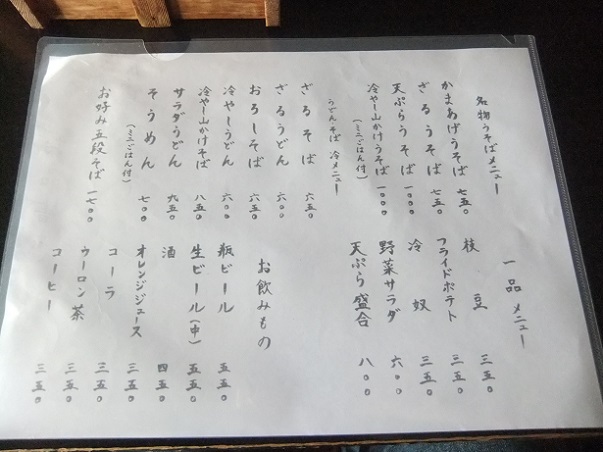 名物うそばメニュー
かまあげうそば 七五〇
ざるうそば 七五〇
天ぷらうそば 一〇〇〇
冷やし山かけうそば 一〇〇〇
(ミニごはん付)
うどん・そば 冷メニュー
ざるそば 六五〇
ざるうどん 六〇〇
おろしそば 六五〇
冷やしうどん 六〇〇
冷やし山かけそば 八五〇
サラダうどん 九五〇
そうめん 七〇〇
(ミニごはん付)
お好み五段そば 一七〇〇
一品メニュー
枝豆 三五〇
フライドポテト 三五〇
冷奴 三五〇
野菜サラダ 六〇〇
天ぷら盛合 八〇〇
お飲みもの
瓶ビール 五五〇
生ビール(中) 五五〇
酒 四五〇
オレンジジュース 三五〇
コーラ 三五〇
ウーロン茶 三五〇
コーヒー 三五〇